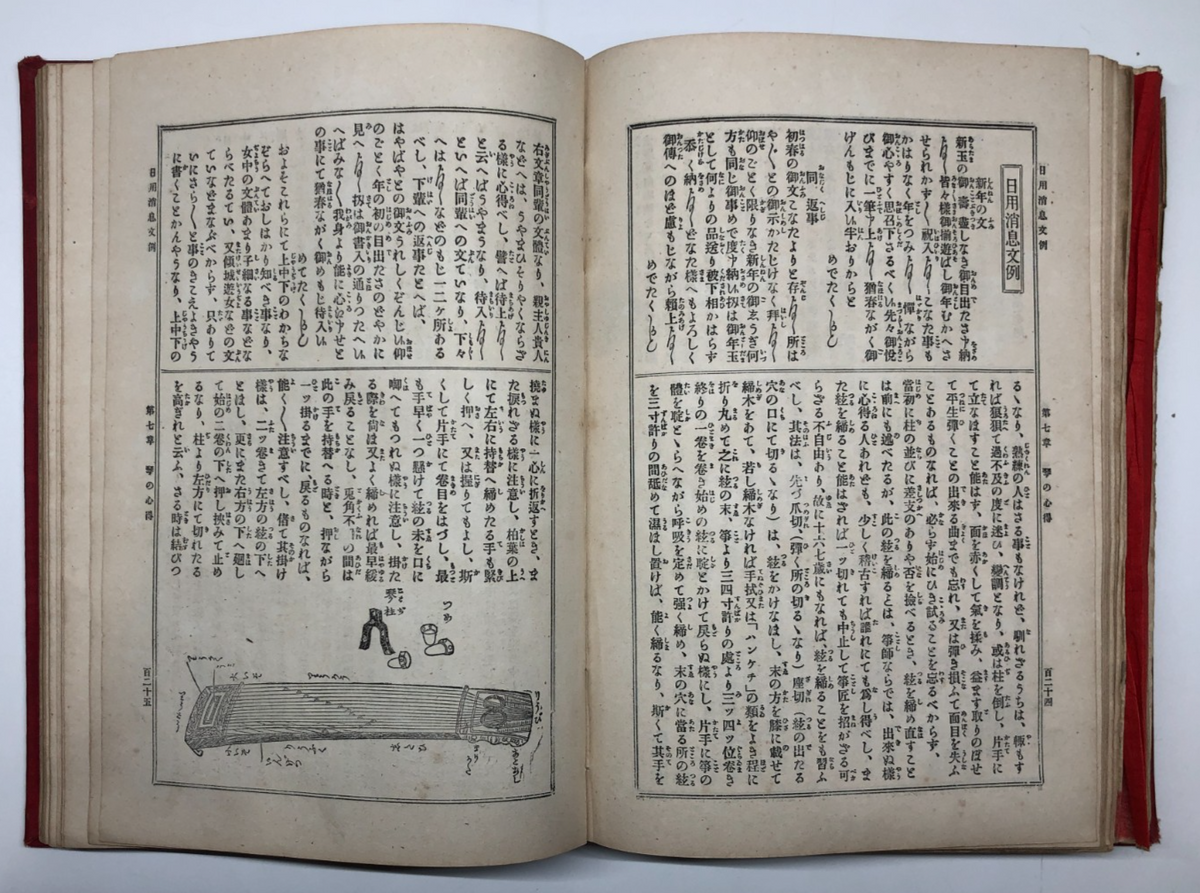 日用消息文例
日用消息文例
新年の文
新玉の御壽盡しなき御目出たさ〻納
せられかす〳〵祝入
かはりなく年をつみ
御心やすく思召下さるべくい先々御悅
びまでに一筆〻上
げんもじに入い半おりからと
めでたく
同返事
初春の御文こなたよりと存
との御示かたじけなく拜
仰のごとく限りなき新年の御
方も同じ御事めで度〻納い扨は御年玉
として何よりの品送り被下相かはらず
御傳へのほど慮もじながら賴上
めでたく
第七章 琴の心得
百二十四
るゝなり、熟練の人はさる事もなけれど、馴れざるうちは、輙もす
れば狼狽て過不及の度に迷ひ、變調となり、或は柱を倒し、片手に
て立なほすこと能はず、面を赤くして氣を揉み、益ます取りのぼせ
て平生彈くことの出來る曲までも忘れ、又は彈き損ふて面目を失ふ
ことあるものなれば、必らず始にひき試ることを忘るべからず、
當初に柱の並びに差支のありや否を撿べるとき、絃を締め直すこと
は前にも述べたるが、此の絃を締るとは、箏師ならでは、出來ぬ樣
に心得る人あれども、少しく稽古すれば誰れにても爲し得べし、ま
た絃を締ること能はざれば一ッ切れても中止して箏匠を招がざる可
らざる不自由あり、故に十六七歳にもなれば絃を締ることをも習ふ
べし、其法は、先づ爪切、(彈く所の切るゝなり)座切(絃の出たる
穴の口にて切るゝなり)は、絃をかけなほし、末の方を膝に載せて
綿木をあて、若し綿木なければ手拭又は「ハンケチ」の類をよき程に
折り丸めて之に絃の末、箏より三四寸許りの處より三ッ四ッ位卷き
終りの一卷を卷き始めの絃に
かけて戾らぬ樣にし、片手に箏の
體を
とらへながら呼吸を定めて强く締め、末の穴に當る所の絃
を三寸許りの間舐めて濕ほし置けば、能く締るなり、斯くて其手を
日用消息文例
右文章同輩の文體なり、親主人貴人
などへは、うやまひそりやくならざ
る樣に心得べし、譬へば待上
と云へばうやまうなり、待入
といへば同輩への文ていなり、下々
へは
などのもじ一二ヶ所ある
べし、下輩への返事たとへば、
はやばやとの御文うれしくぞんじい仰
のごとく年の初の目出たさのどやかに
見へ
扨は御書入の通りつたへい
へばみな〳〵我身より能に心〻せと
の事にて猶春ながく御めもじ待入い
めでたく
およそこれらにて上中下のわかちな
ぞらへておしはかり知べき事なり、
女中の文體あまり子細なる事などな
らべたるてい、又傾城遊女などの文
ていなどまなぶべからず、只ありて
いにさら〳〵と事のきこえよきやう
に書くことかんやうなり、上中下の
第七章 琴の心得
百二十五
撓まぬ樣に一心に折返すとき、ま
た捩れざる樣に注意し、柏葉の上
にて左右に持替へ締めたる手も緊
しく押へ、又は握りてもよし、斯
くして片手にて卷目をはづし、最
も手早く一つ懸けて絃の末を口に
啣へてもつれぬ樣に注意し、掛た
る際を尙は又よく締めれば最早緩
み戾ることなし、兎角不
の間は
此の手を持替へる時と、押ながら
一ッ掛るまでに戾るものなれば、
能く〳〵注意すべし、偖て其掛け
樣は、二ッ卷きて左方の絃の下へ
とほし、更にまた右方の下へ
し
て始の二卷の下へ押し挾みて止め
るなり、柱より左方にて切れたる
を高ぎれと云ふ、さる時は結びつ
琴柱
つめ